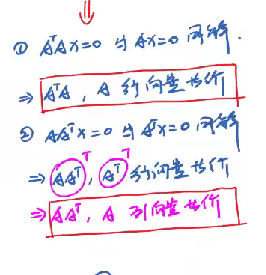 ① AᵀAx=0 与 Ax=0 同解.
⇒ AᵀA, A 行向量等价
② AAᵀx=0 与 Aᵀx=0 同解
⇒ (AAᵀ)ᵀ, (Aᵀ)ᵀ 行向量等价
⇒ AAᵀ, A 列向量等价